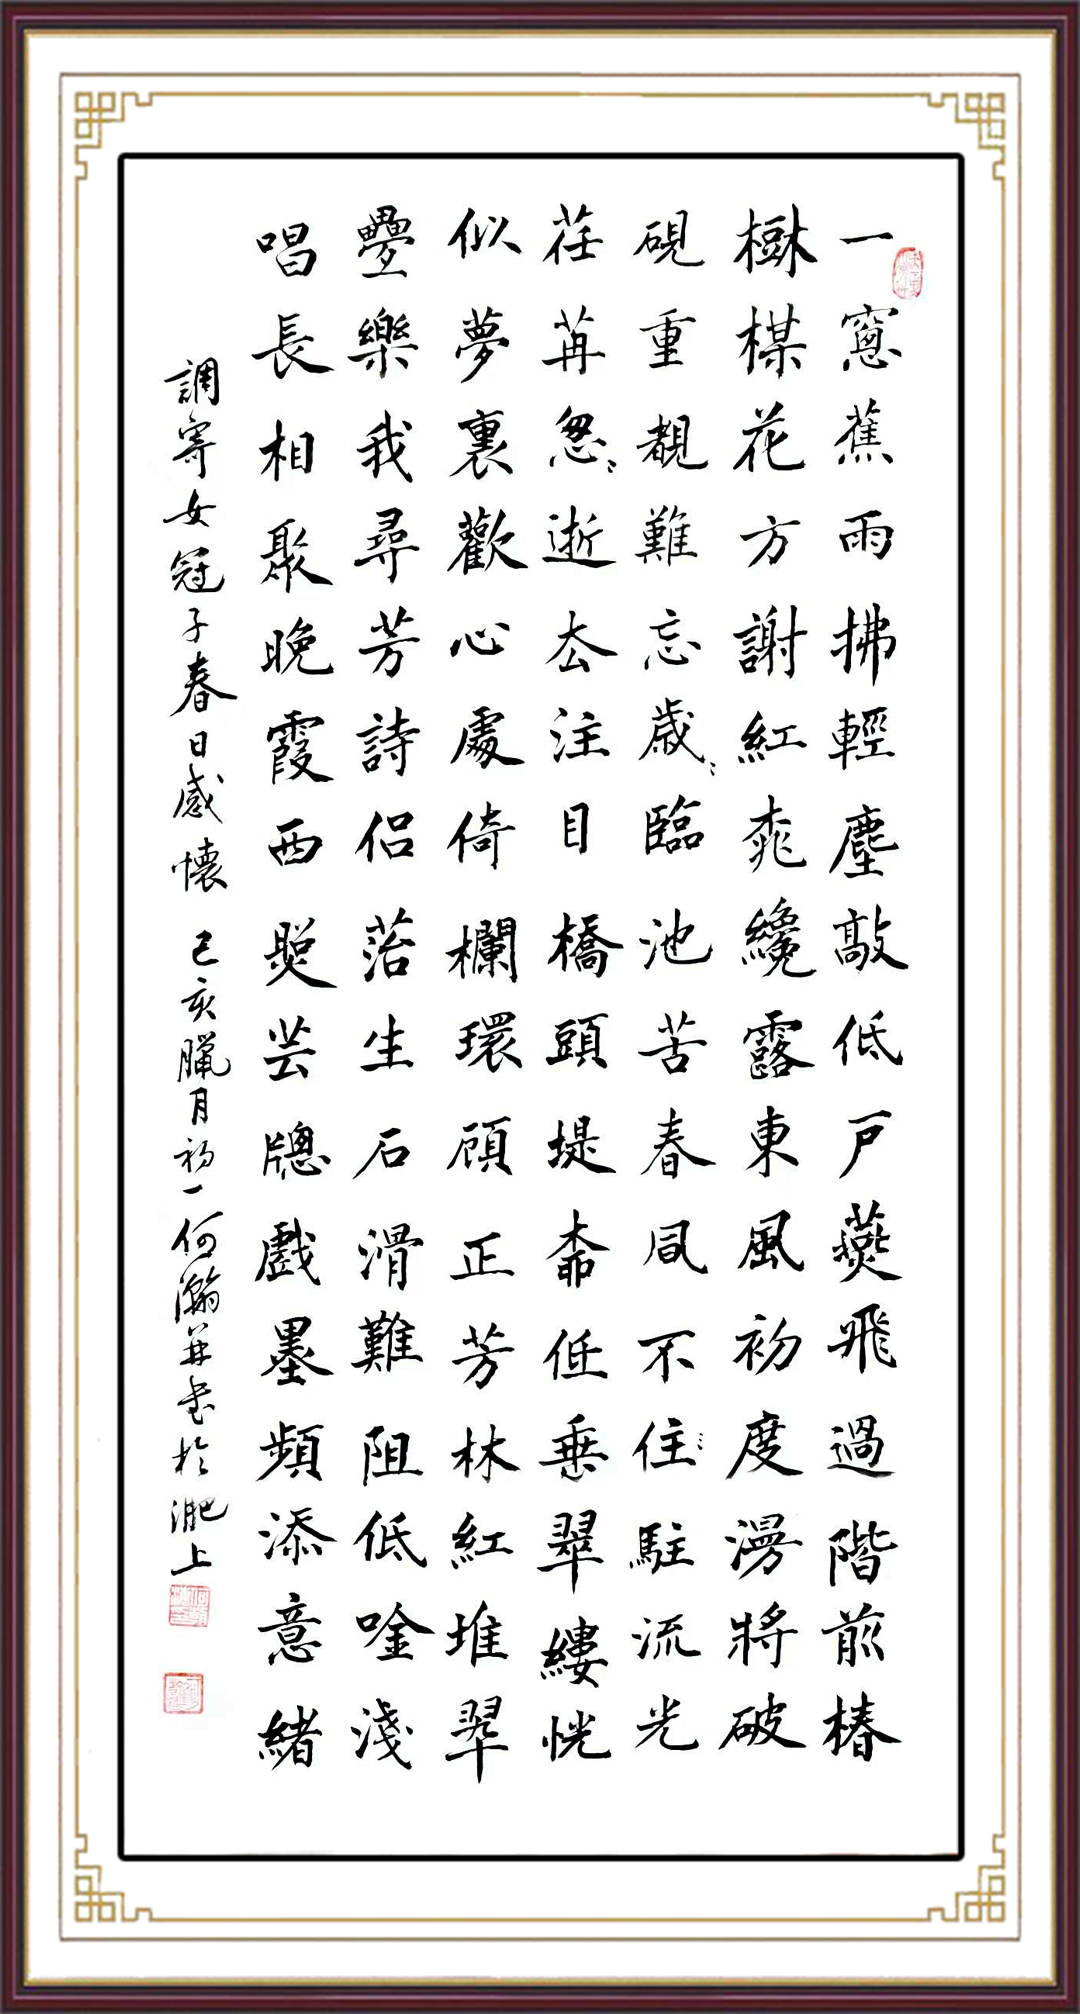 一窻蕉雨拂輕塵敲低戸燕飛過階前椿
樹楳花方謝紅桃纔露東風初度漫將破
硯重覩難忘歲〻臨池苦春風不住〻駐流光
荏苒怱〻逝去注目橋頭堤畚低垂翠縷恍
似夢裏歡心處倚欄環顧正芳林紅堆翠
疊樂我尋芳詩侶落生石滑難阻低唫淺
唱長相聚晚霞西照芸牕戲墨頻添意緒
調寄女冠子春日感懷 己亥臘月初一何瀚並書於淝上